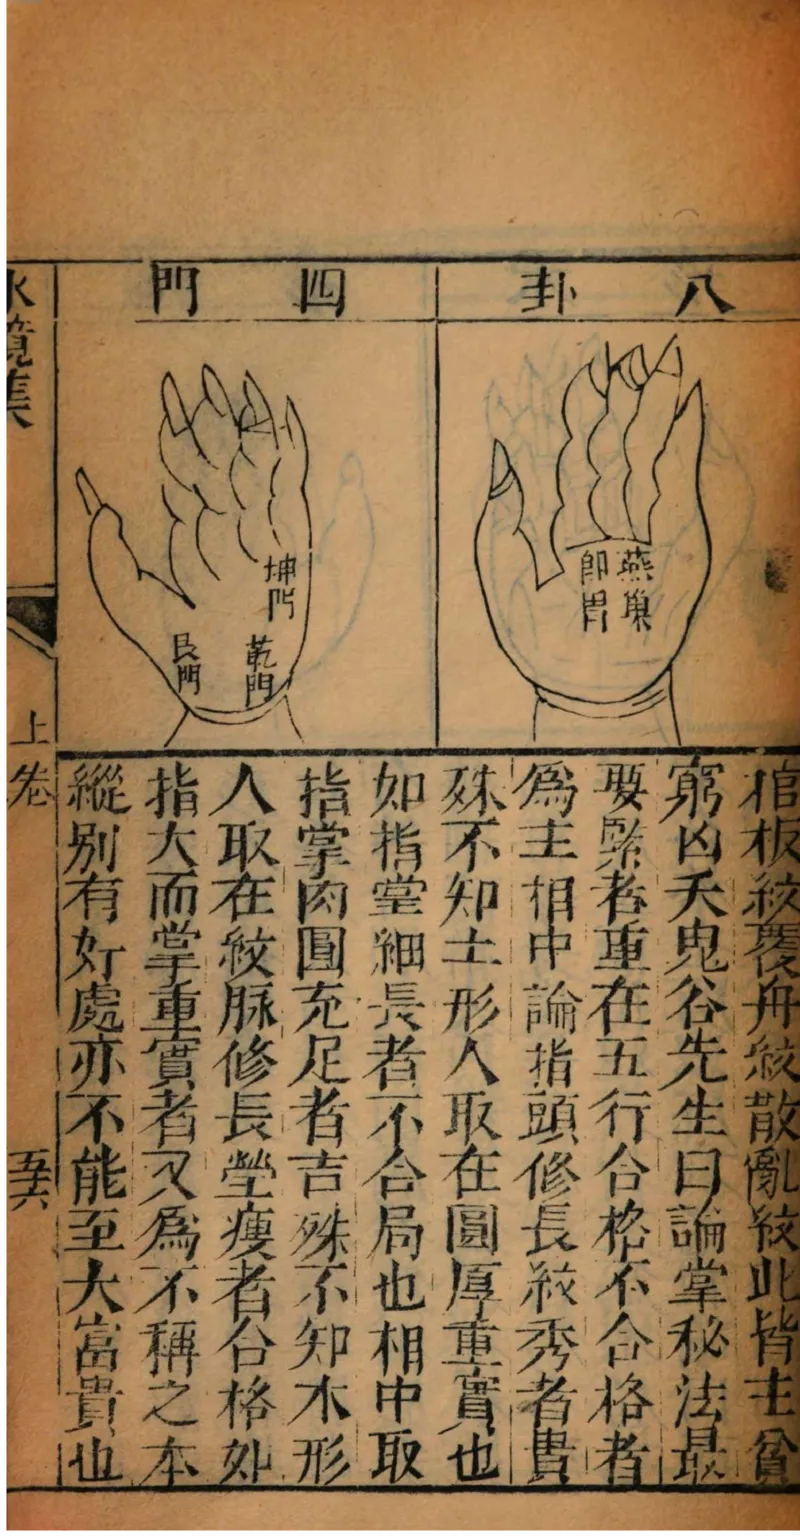 八卦
燕巢
即
四門
坤門
乾門
艮門
棺板紋覆舟紋散亂紋此皆主貧
窮凶夭鬼谷先生曰論掌秘法最
要緊者重在五行合格不合格者
爲主相中論指頭修長紋秀者貴
殊不知土形人取在圓厚重實也
如指堂細長者不合局也相中取
指掌肉圓充足者吉殊不知木形
人取在紋脉修長瑩瘦者合格如
指大而掌重實者又爲不稱之本
縱別有好處亦不能至大富貴也
水鏡集
上卷
五六